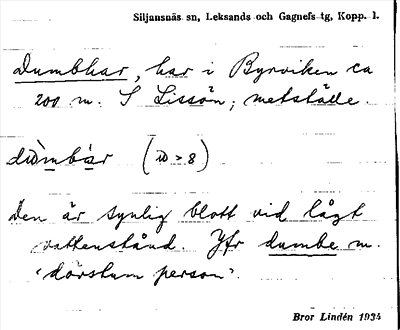 Siljansnäs sn, Leksands och Gagnefs tg, Kopp. l.
Dumbkar, kar i Byrviken ca
200 m. S Lissön; metställe.
Den är synlig blott vid lågt
vattenstånd. Jfr dumbe m.
'dövstum person'.
Bror Lindén 1934